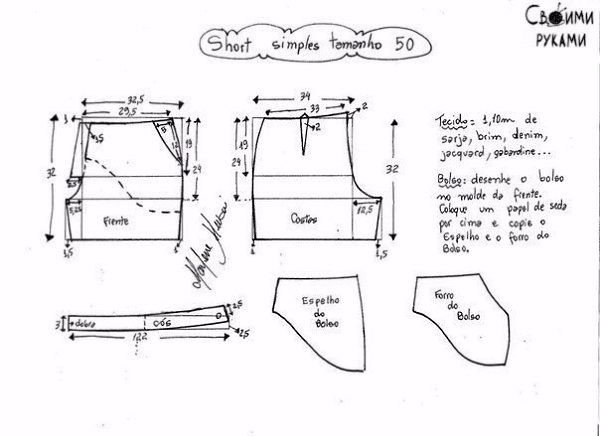 Short simples tamanho 50
Своими
руками
32,5
29,5
3
3,5
5
12
19
24
32
5,25
Frente
1,5
1
34
33
2
2
19
24
32
12,5
Costas
1
1,5
Tecido: 1,10m de
sarja, brim, denim,
jacquard, gabardine...
Bolso: desenhe o bolso
no molde da frente.
Coloque um papel de seda
por cima e copie o
Espelho e o forro do
Bolso.
Marlene Mukai
3
dobra
cós
2,5
2,5
122
Espelho
do
Bolso
Forro
do
Bolso